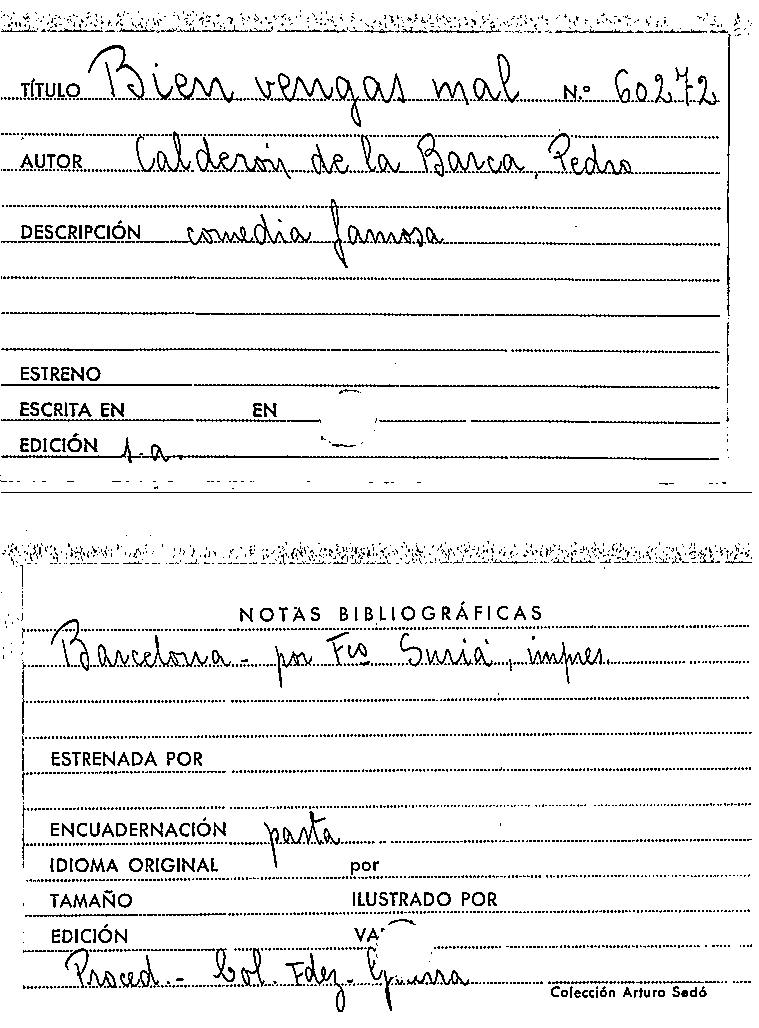 TÍTULO Bien vengas mal N.º 60272
AUTOR Calderón de la Barca, Pedro
DESCRIPCIÓN comedia famosa
ESTRENO
ESCRITA EN EN
EDICIÓN s.a.
NOTAS BIBLIOGRÁFICAS
Barcelona - por Fco Suriá, impres.
ESTRENADA POR
ENCUADERNACIÓN pasta
IDIOMA ORIGINAL por
TAMAÑO ILUSTRADO POR
EDICIÓN VA
Proced.- Col. Fdez-Guerra
Colección Arturo Sedó